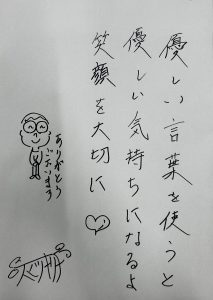 優しい言葉を使うと
優しい気持ちになるよ
笑顔を大切に
ありがとう
ございます